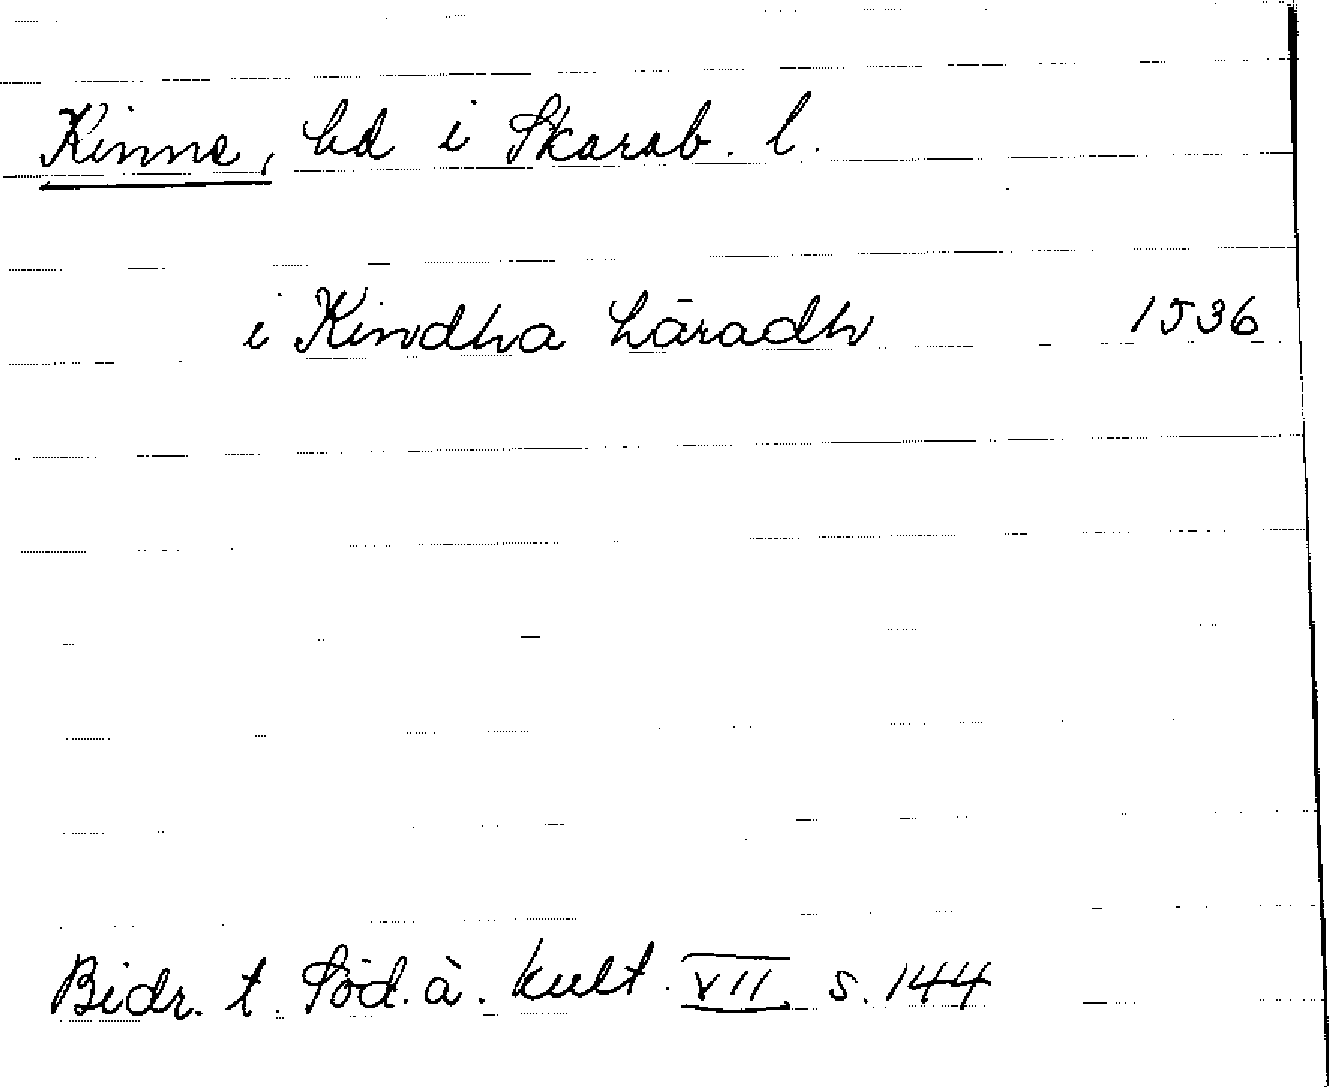 Kinne, hd i Skarab. l.
i Kindha häradh 1536
Bidr. t. Söd. ä. kult. VII s. 144